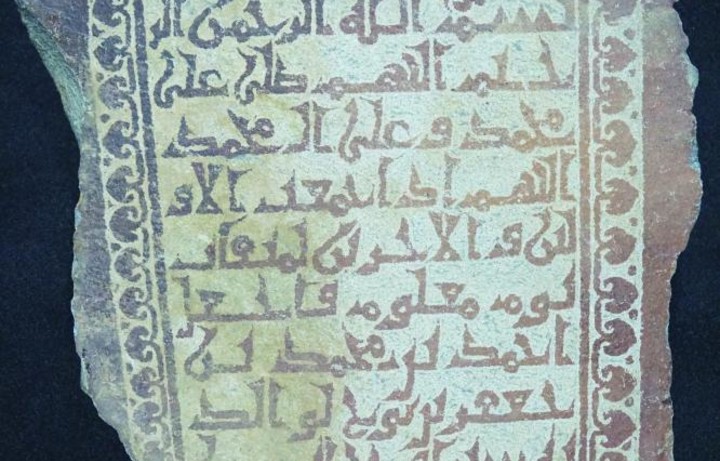 بسم الله الرحمن الر
حيم اللهم صلى على
محمد و على ال محمد
اللهم اذا جمعت الاو
لين و الاخرين لميقات
يوم معلوم فاجعل
احمد بن محمد بن
جعفر بن